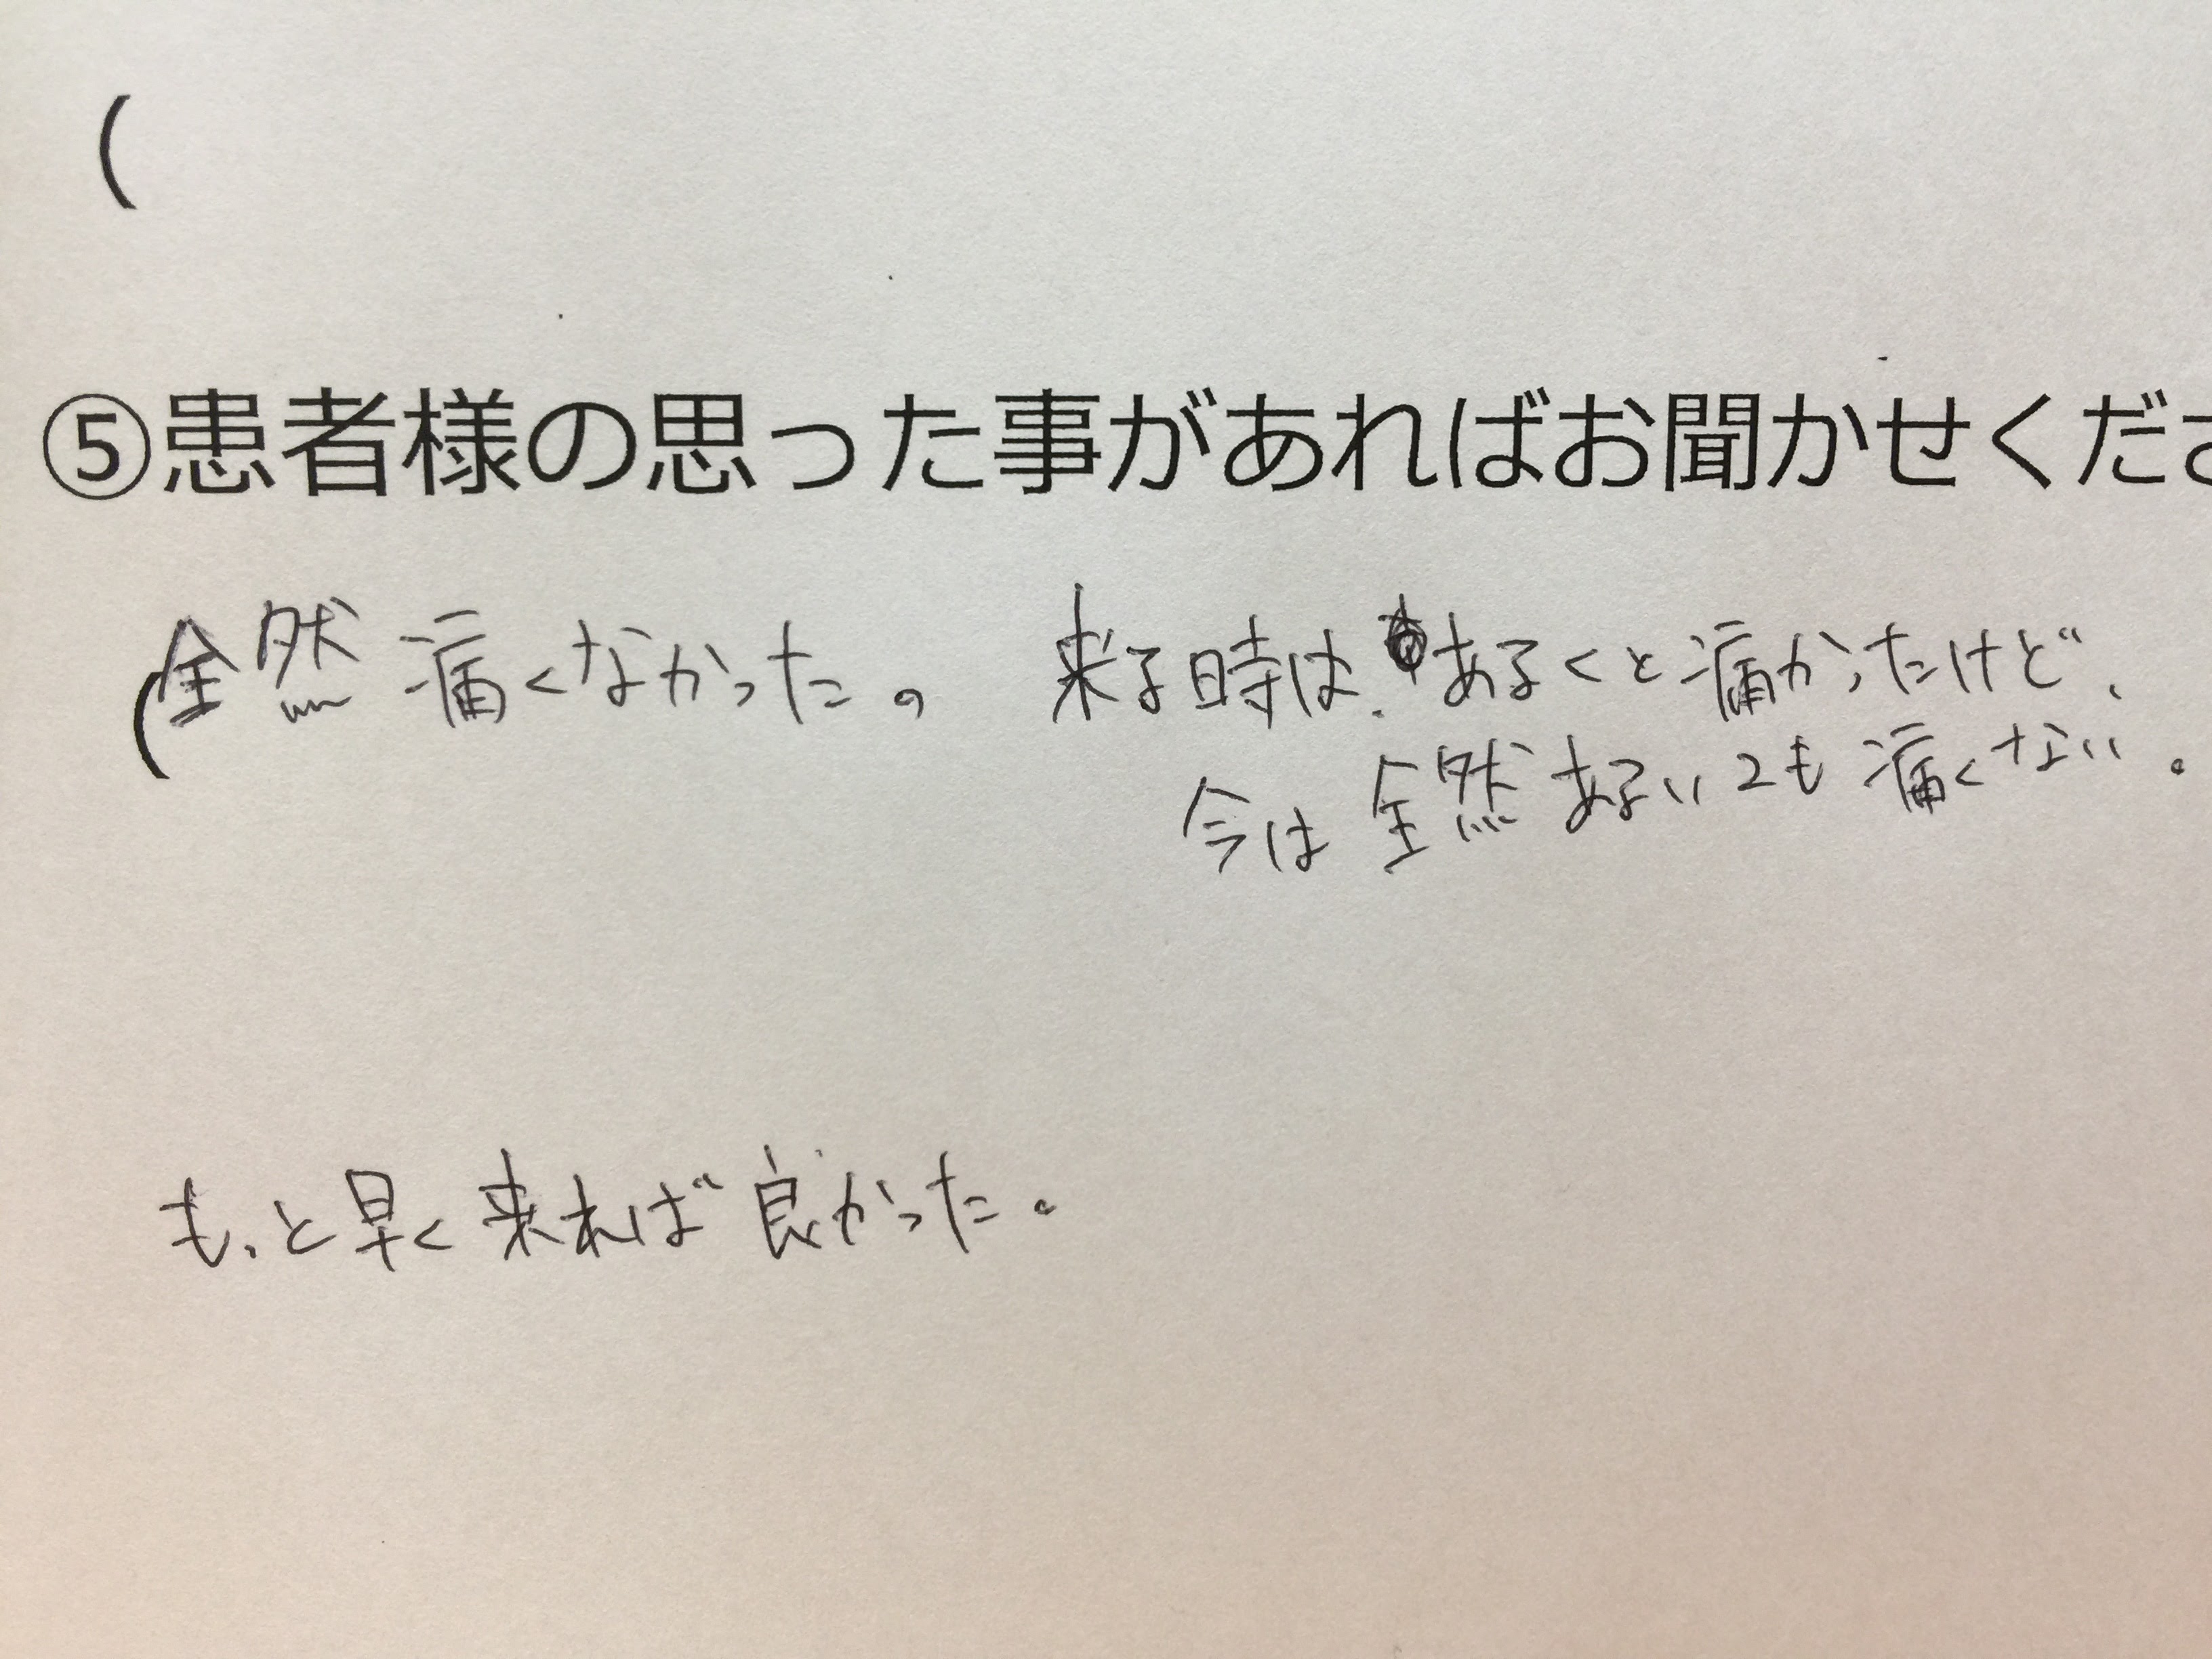 (
⑤患者様の思った事があればお聞かせくださ
(全然痛くなかった。 来る時は、あるくと痛かったけど、
今は全然あるいても痛くない。
もっと早く来れば良かった。